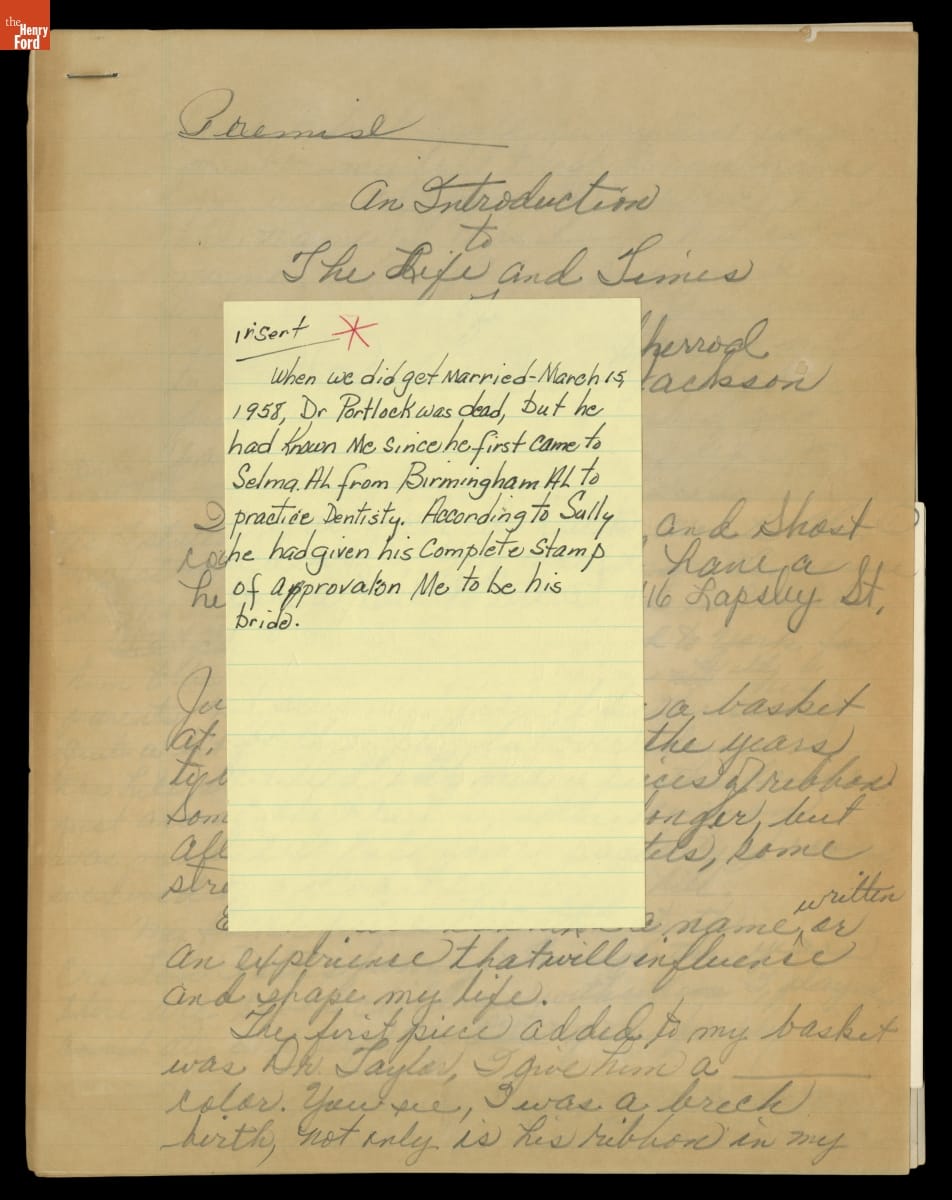 the Henry Ford
Premise
An Introduction
to
The Life and Times
herrod
ackson
insert *
When we did get Married-March 15,
1958, Dr Portlock was dead, but he
had known Me since he first came to
Selma. AL from Birmingham AL to
practice Dentisty. According to Sully
he had given his Complete Stamp
of approval on Me to be his
bride.
and Ghost
have a
he 116 Lapsley St,
Ju a basket
at, the years
ty ices of ribbon
Som onger, but
afte some
stre
name, written or
an experience that will influence
and shape my life.
The first piece added to my basket
was Dr. Taylor, I give him a ______
color. You see, I was a brech
birth, not only is his ribbon in my